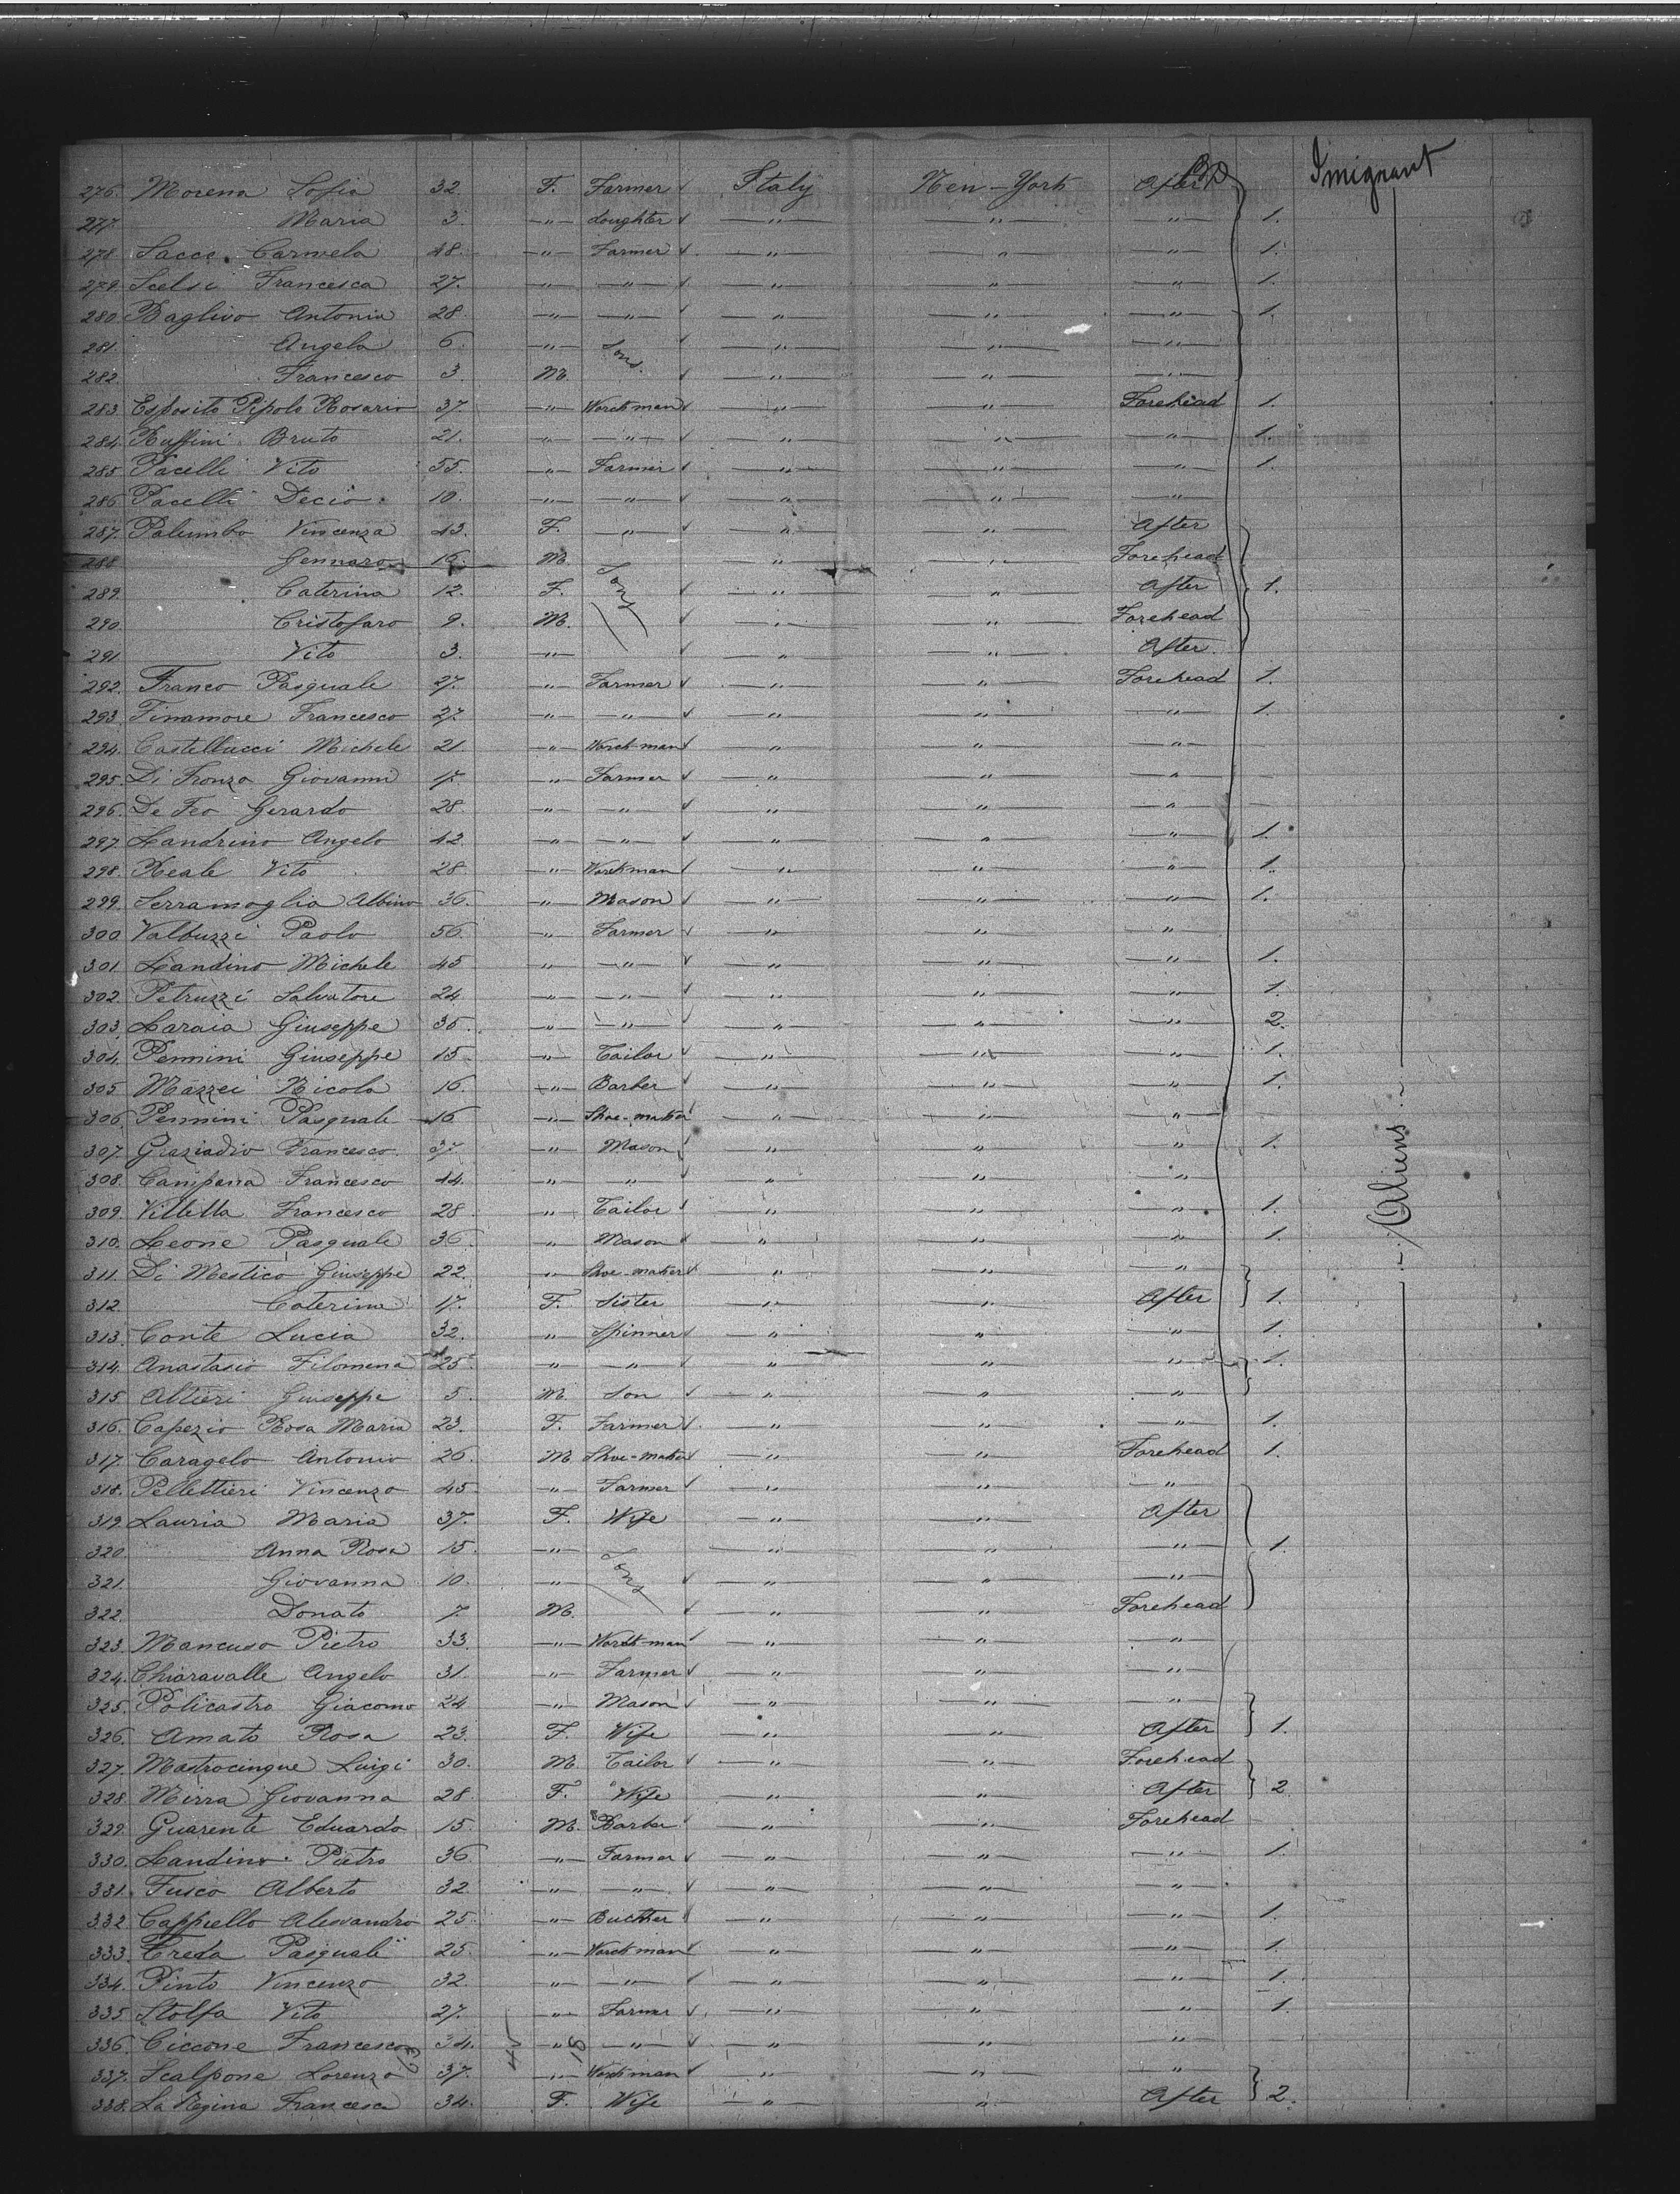 Imigrant
276. Morena Sofia 32 F. Farmer Italy New-York After
277. Maria 3. -"- doughter -"- -"- -"- 1.
278 Sacco Carmela 48. -"- Farmer -"- -"- -"- 1.
279. Scelsi Francesca 27. -"- -"- -"- -"- -"- 1.
280 Baglivo Antonia 28. -"- -"- -"- -"- -"- 1.
281. Angela 6. -"- Sons. -"- -"- -"-
282. Francesco 3. M. -"- -"- -"-
283. Esposito Pipolo Rosario 37. -"- Workman -"- -"- Forehead 1.
284. Ruffini Bruto 21. -"- -"- -"- -"- -"- 1.
285 Pacelli Vito 55. -"- Farmer -"- -"- -"- 1.
286 Pacelli Decio 10. -"- -"- -"- -"- -"-
287. Palumbo Vincenza 43. F. -"- -"- -"- After
288 Gennaro M. Sons -"- -"- Forehead
289. Caterina 12. F. -"- -"- After 1.
290. Cristofaro 9. M. -"- -"- Forehead
291. Vito 3. -"- -"- -"- After.
292. Franco Pasquale 27. -"- Farmer -"- -"- Forehead 1.
293 Finamore Francesco 27. -"- -"- -"- -"- -"- 1.
294. Castellucci Michele 21. -"- Workman -"- -"- -"-
295. Di Fronzo Giovanni 17. -"- Farmer -"- -"- -"-
296. De Feo Gerardo 28. -"- -"- -"- -"- -"-
297. Landrino Angelo 42. -"- -"- -"- -"- -"- 1.
298. Reale Vito 28 -"- Workman -"- -"- -"- 1.
299. Serramoglia Albino 36. -"- Mason -"- -"- -"- 1.
300 Valbuzzi Paolo 56. -"- Farmer -"- -"- -"-
301 Landino Michele 45 -"- -"- -"- -"- -"- 1.
302. Petruzzi Salvatore 24. -"- -"- -"- -"- -"- 1.
303. Laraia Giuseppe 35. -"- -"- -"- -"- -"- 2.
304. Pennini Giuseppe 15. -"- Tailor -"- -"- -"- 1.
305 Mazzei Nicola 16. -"- Barber -"- -"- -"- 1.
306. Pennini Pasquale 16 -"- Shoe-maker -"- -"- -"-
307. Graziadio Francesco 37. -"- Mason -"- -"- -"- 1.
308. Campana Francesco 44. -"- -"- -"- -"- -"-
309. Villetta Francesco 28 -"- Tailor -"- -"- -"- 1.
310. Leone Pasquale 36. -"- Mason -"- -"- -"- 1.
311. Di Mestico Giuseppe 22. -"- Shoe-maker -"- -"- -"-
312. Caterina 17. F. Sister -"- -"- After 1.
313. Conte Lucia 32. -"- Spinner -"- -"- -"- 1.
314. Anastasio Filomena 25. -"- -"- -"- -"- -"- 1.
315 Altieri Giuseppe 5. M. Son -"- -"- -"-
316. Capezio Rosa Maria 23. F. Farmer -"- -"- -"- 1.
317. Caragelo Antonio 26. M. Shoe-maker -"- -"- Forehead 1.
318. Pellettieri Vincenzo 45 -"- Farmer -"- -"- -"-
319. Lauria Maria 37. F. Wife -"- -"- After
320. Anna Rosa 15. -"- Sons -"- -"- -"- 1.
321. Giovanna 10. -"- -"- -"- -"-
322. Donato 7. M. -"- -"- Forehead
323. Mancuso Pietro 33. -"- Workman -"- -"- -"-
324. Chiaravalle Angelo 31. -"- Farmer -"- -"- -"-
325. Policastro Giacomo 24 -"- Mason -"- -"- -"-
326. Amato Rosa 23. F. Wife -"- -"- After 1.
327. Mastrocinque Luigi 30. M. Tailor -"- -"- Forehead
328. Mirra Giovanna 28 F. Wife -"- -"- After 2.
329. Guarente Eduardo 15 M. Barber -"- -"- Forehead
330. Landino Pietro 36 -"- Farmer -"- -"- -"- 1.
331. Fusco Alberto 32. -"- -"- -"- -"- -"-
332 Cappiello Alessandro 25. -"- Bucther -"- -"- -"- 1.
333. Creda Pasquale 25. -"- Workman -"- -"- -"- 1.
334. Pinto Vincenzo 32. -"- -"- -"- -"- -"- 1.
335. Stolfa Vito 27. -"- Farmer -"- -"- -"- 1.
336. Ciccone Francesco 34. -"- -"- -"- -"- -"-
337. Scalpone Lorenzo 37. -"- Workman -"- -"- -"-
338. La Regina Francesca 34. F. Wife -"- -"- After 2.
Aliens